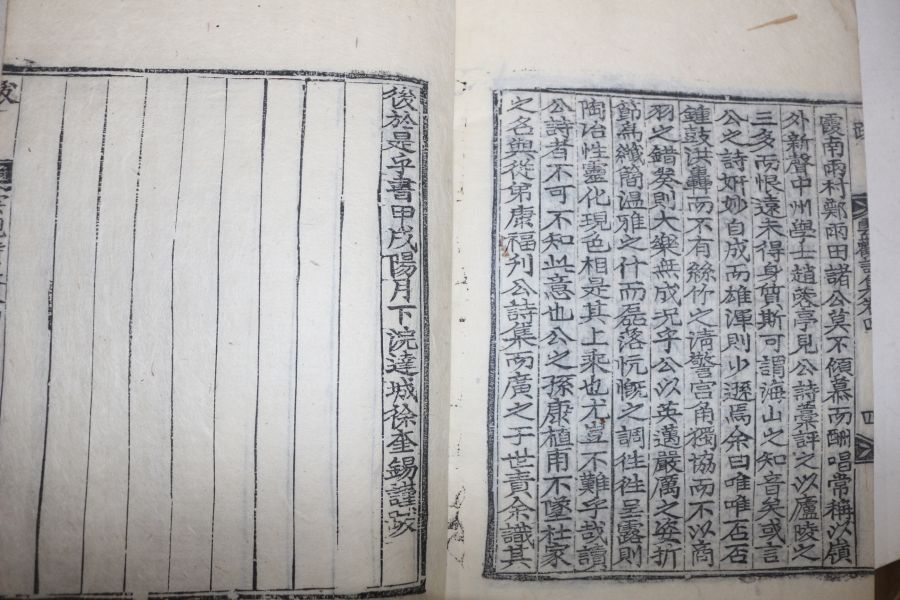 霞南雨村鄭雨田諸公莫不傾慕而酬唱常稱以嶺
外新聲中州學士趙蓉亭見公詩藁評之以廬陵之
三多而恨遠未得身質斯可謂海山之知音矣或言
公之詩姸妙自成而雄渾則少遜焉余曰唯唯否否
鍾鼓洪轟而不有絲竹之淸警宮角獨協而不以商
羽之錯癸則大樂無成况乎公以英邁嚴厲之姿折
節爲纖簡温雅之什而磊落忼慨之調徃徃呈露則
陶冶性靈化現色相是其上乘也尤豈不難乎哉讀
公詩者不可不知此意也公之孫康植甫不墜杜家
之名與從弟康福刊公詩集而廣之于世責余識其
後於是乎書甲戌陽月下浣達城徐奎錫謹跋
四
跋